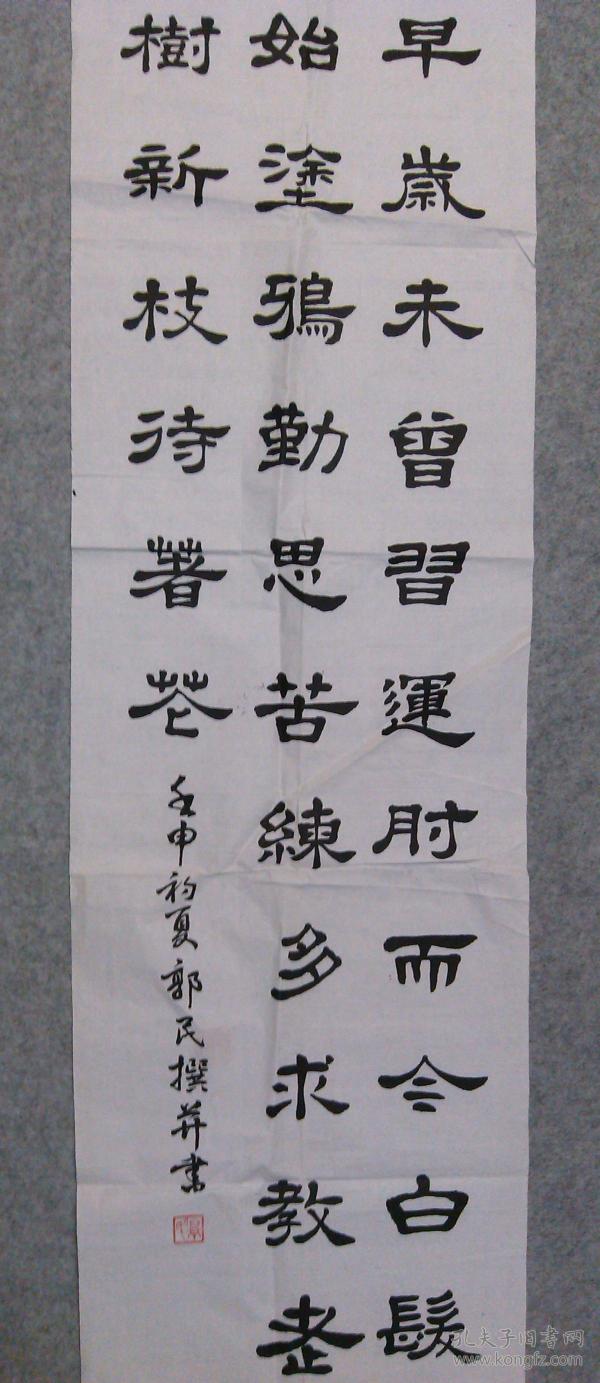 早歲未曾習運肘而今白髮
始塗鴉勤思苦練多求教老
樹新枝待著花
壬申初夏郭民撰并書
孔夫子旧书网
www.kongfz.com